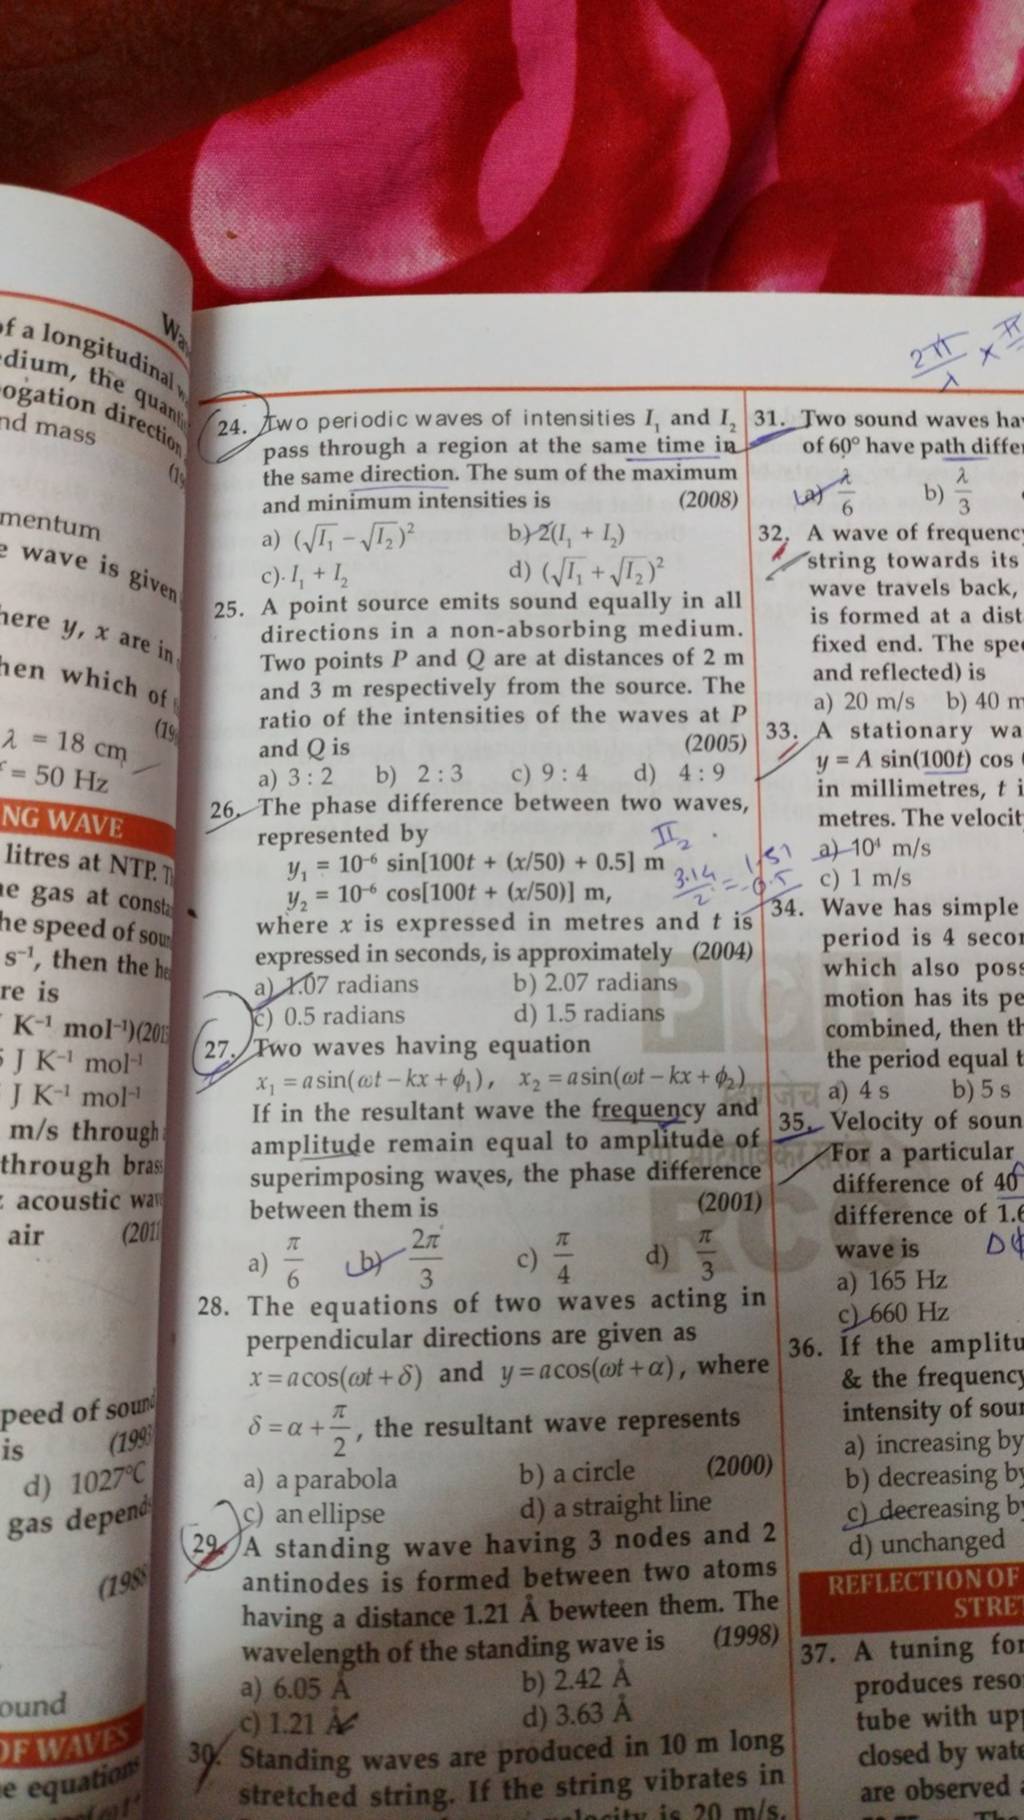 Wa
of a longitudinal
dium, the
ogation direction
nd mass
mentum
wave is given
here y, x are in
hen which of
λ = 18 cm
= 50 Hz
NG WAVE
litres at NTP.
gas at
he speed of
s⁻¹, then the
re is
K⁻¹ mol⁻¹)
J K⁻¹ mol⁻¹
J K⁻¹ mol⁻¹
m/s through
through
acoustic
air
peed of
is
d) 1027°C
gas
ound
OF WAVES
2π/λ × π
24. Two periodic waves of intensities I₁ and I₂
pass through a region at the same time in
the same direction. The sum of the maximum
and minimum intensities is (2008)
a) (√I₁ − √I₂)² b) 2(I₁ + I₂)
c) I₁ + I₂ d) (√I₁ + √I₂)²
25. A point source emits sound equally in all
directions in a non-absorbing medium.
Two points P and Q are at distances of 2 m
and 3 m respectively from the source. The
ratio of the intensities of the waves at P
and Q is (2005)
a) 3 : 2 b) 2 : 3 c) 9 : 4 d) 4 : 9
26. The phase difference between two waves,
represented by
y₁ = 10⁻⁶ sin[100t + (x/50) + 0.5] m
y₂ = 10⁻⁶ cos[100t + (x/50)] m,
3.14/2 =
where x is expressed in metres and t is
expressed in seconds, is approximately (2004)
a) 1.07 radians b) 2.07 radians
c) 0.5 radians d) 1.5 radians
27. Two waves having equation
x₁ = a sin(ωt − kx + ϕ₁), x₂ = a sin(ωt − kx + ϕ₂)
If in the resultant wave the frequency and
amplitude remain equal to amplitude of
superimposing waves, the phase difference
between them is (2001)
a) π/6 b) 2π/3 c) π/4 d) π/3
28. The equations of two waves acting in
perpendicular directions are given as
x = a cos(ωt + δ) and y = a cos(ωt + α), where
δ = α + π/2, the resultant wave represents
a) a parabola b) a circle (2000)
c) an ellipse d) a straight line
29. A standing wave having 3 nodes and 2
antinodes is formed between two atoms
having a distance 1.21 Å bewteen them. The
wavelength of the standing wave is (1998)
a) 6.05 Å b) 2.42 Å
c) 1.21 Å d) 3.63 Å
30. Standing waves are produced in 10 m long
stretched string. If the string vibrates in
is 20 m/s.
31. Two sound waves ha
of 60° have path differ
a) λ/6 b) λ/3
32. A wave of frequency
string towards its
wave travels back,
is formed at a dist
fixed end. The spe
and reflected) is
a) 20 m/s b) 40 m
33. A stationary wa
y = A sin(100t) cos
in millimetres, t i
metres. The velocit
a) 10⁴ m/s
c) 1 m/s
34. Wave has simple
period is 4 secon
which also poss
motion has its pe
combined, then th
the period equal t
a) 4 s b) 5 s
35. Velocity of soun
For a particular
difference of 40
difference of 1.6
wave is
a) 165 Hz
c) 660 Hz
36. If the amplitu
& the frequency
intensity of sour
a) increasing by
b) decreasing by
c) decreasing by
d) unchanged
REFLECTION OF
STRE
37. A tuning for
produces reso
tube with upp
closed by wate
are observed
RCC